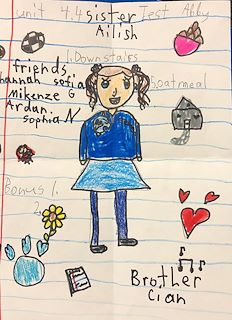 unit 4.4 Test Abby
sister
Ailish
1. Downstairs
2. oatmeal
friends
hannah sofia G
Mikenze
Ardan
sophia N
Bonus 1.
2.
Brother
Cian